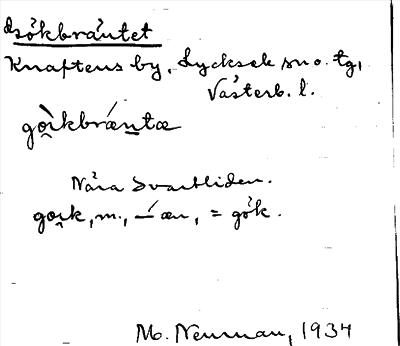 Gökbräntet
Knaftens by, Lycksele sn o. tg,
Västerb. l.
gọi̯kbrǽntæ
Nära Svartliden.
gọi̯k, m., –́æn, = gök.
M. Neuman, 1934